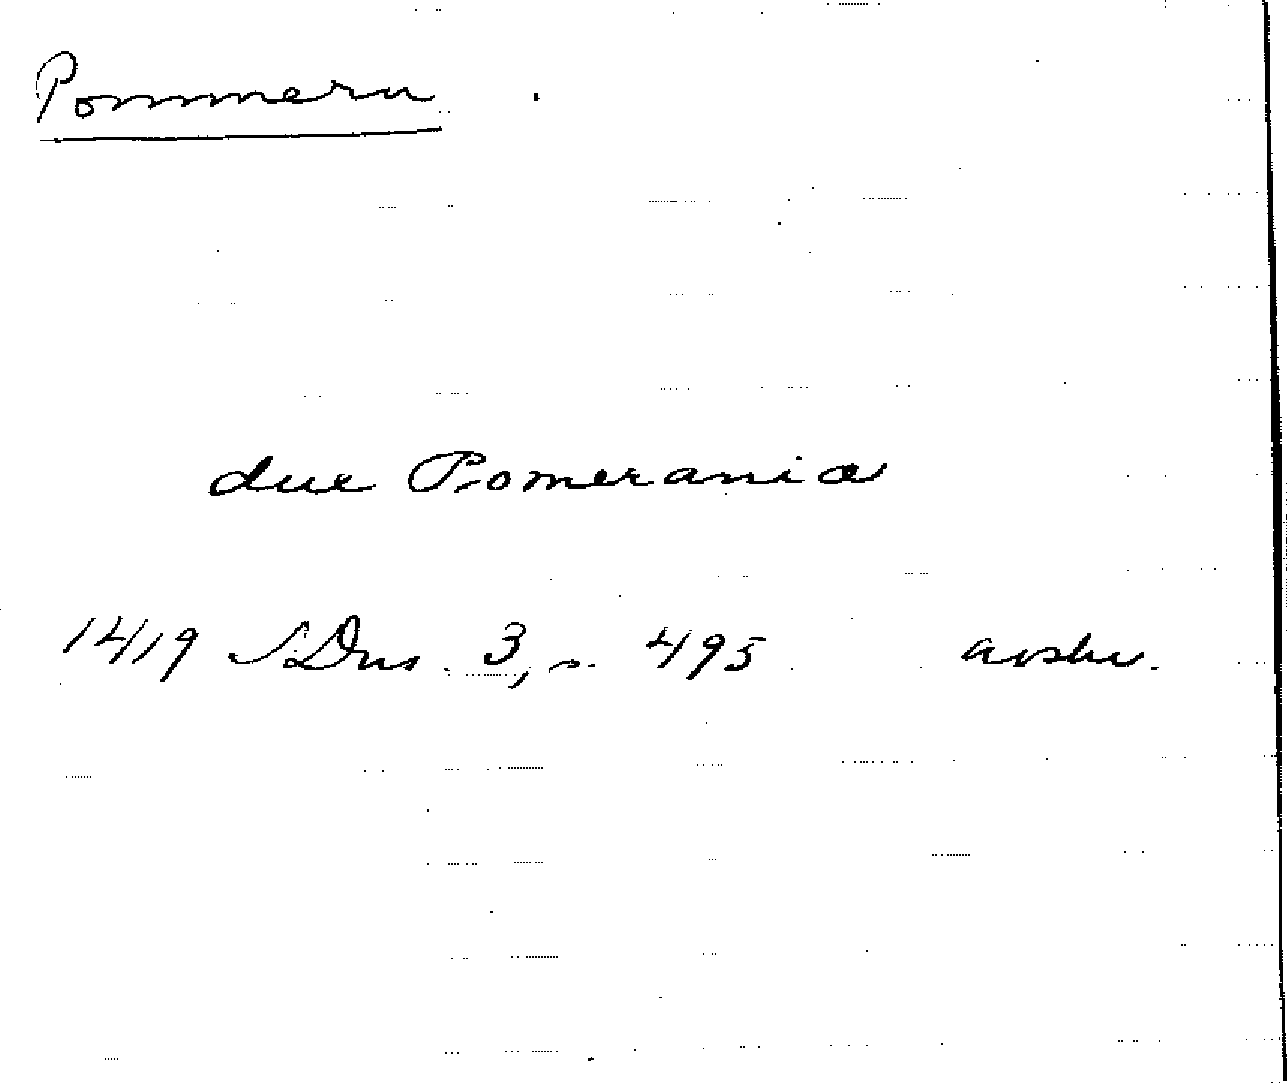 Pommern
due Pomerania
1419 SDns. 3, s. 495 avskr.